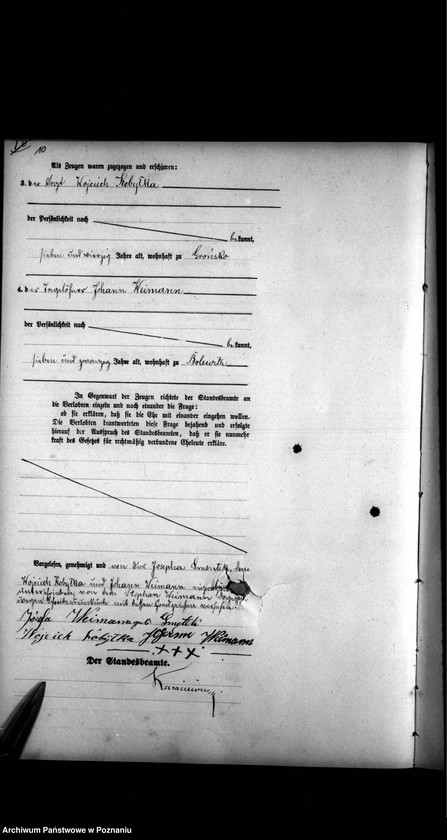 10
Als Zeugen waren zugezogen und erschienen:
3. der Vogt Wojciech Kobyłka
der Persönlichkeit nach
be kannt,
sieben und vierzig Jahre alt, wohnhaft zu Grońsko
4. der Tagelöhner Johann Weimann
der Persönlichkeit nach
be kannt,
sieben und zwanzig Jahre alt, wohnhaft zu Bolewitz
In Gegenwart der Zeugen richtete der Standesbeamte an
die Verlobten einzeln und nach einander die Frage:
ob sie erklären, daß sie die Ehe mit einander eingehen wollen.
Die Verlobten beantworteten diese Frage bejahend und erfolgte
hierauf der Ausspruch des Standesbeamten, daß er sie nunmehr
kraft des Gesetzes für rechtmäßig verbundene Eheleute erkläre.
Vorgelesen, genehmigt und von der Josepha dem
Wojciech Kobyłka und Johann Weimann
unterschrieben, von dem Stephan Weimann
wegen mit seinem Handzeichen versehen
Józefa Weimann geb.
Wojciech Kobyłka Johann Weimann
+++
Der Standesbeamte.
Archiwum Państwowe w Poznaniu